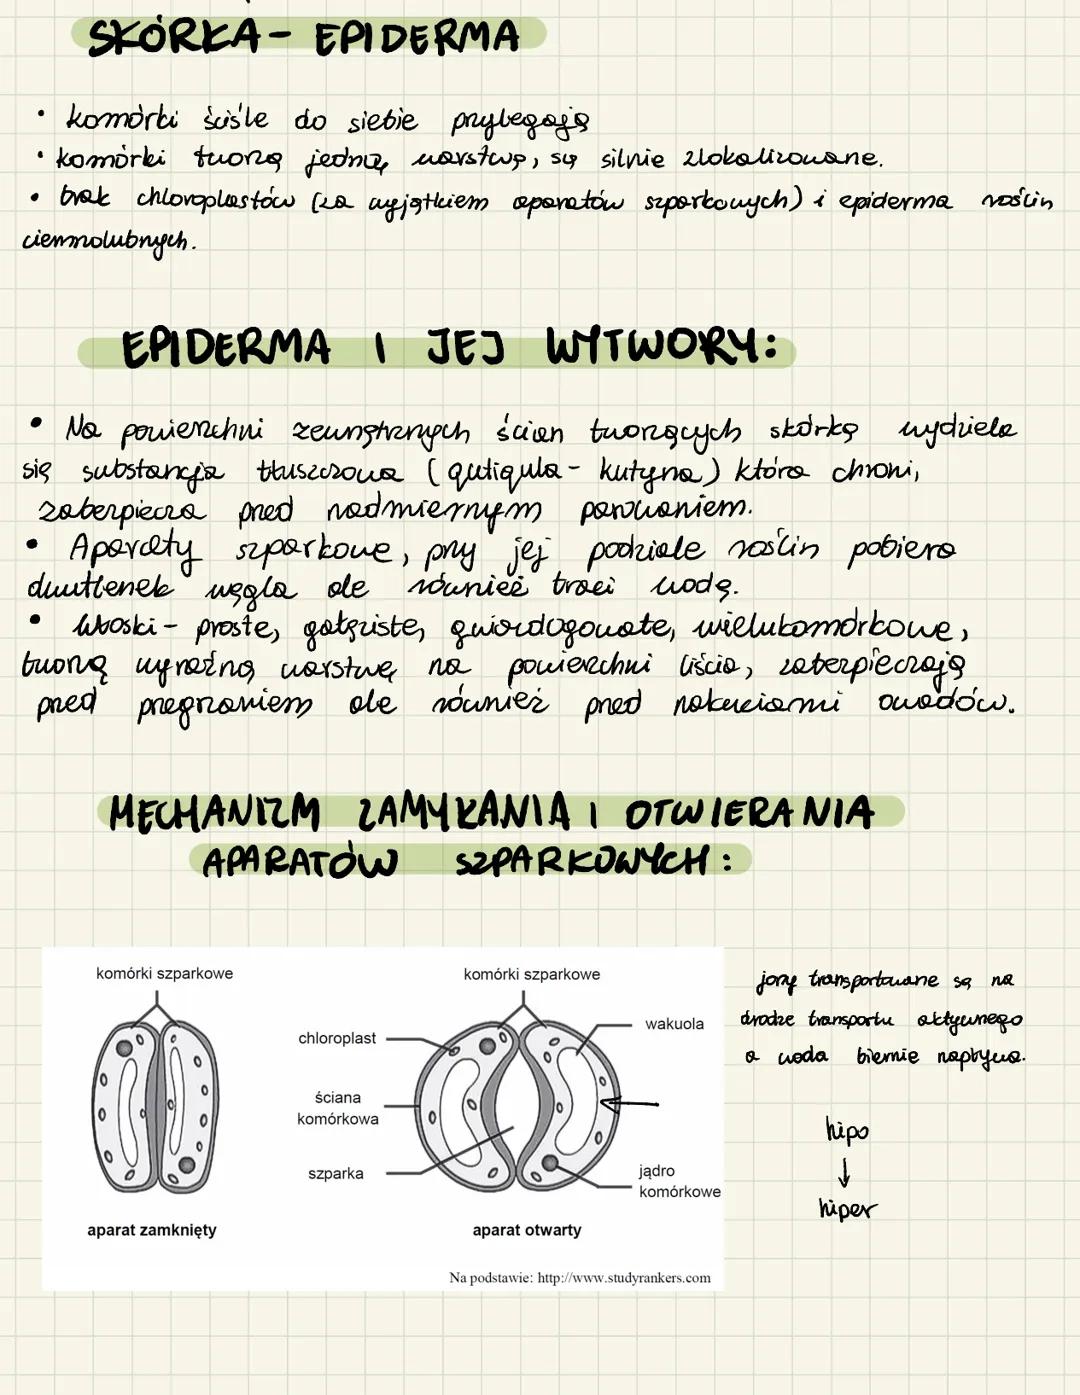 SKÓRKA - EPIDERMA
• komórki ściśle do siebie przylegają
• komórki tworzą jedną warstwę, są silnie zlokalizowane.
• brak chloroplastów (za wyjątkiem aparatów szparkowych) i epiderma roślin
cienolubnych.
EPIDERMA I JEJ WYTWORY:
• Na powierzchni zewnętrznych ścian tworzących skórkę wydziela
się substancja tłuszczowa (qutiqula - kutyna) która chroni,
zabezpiecza przed nadmiernym parowaniem.
• Aparaty szparkowe, przy jej podziale roślin pobiera
dwutlenek węgla ale również traci wodę.
• Włoski - proste, gałęziste, gwiazdogowate, wielukomórkowe,
tworzą wyraźną warstwę na powierzchni liścia, zabezpieczają
przed pregrzaniem ale również przed nakuciami owadów.
MECHANIZM ZAMYKANIA I OTWIERANIA
APARATÓW SZPARKOWYCH:
komórki szparkowe
komórki szparkowe
chloroplast
wakuola
ściana
komórkowa
szparka
jądro
komórkowe
aparat zamknięty
aparat otwarty
Na podstawie: http://www.studyrankers.com
jony transportowane są na
drodze transportu aktywnego
a woda biernie napływa.
hipo
↓
hiper